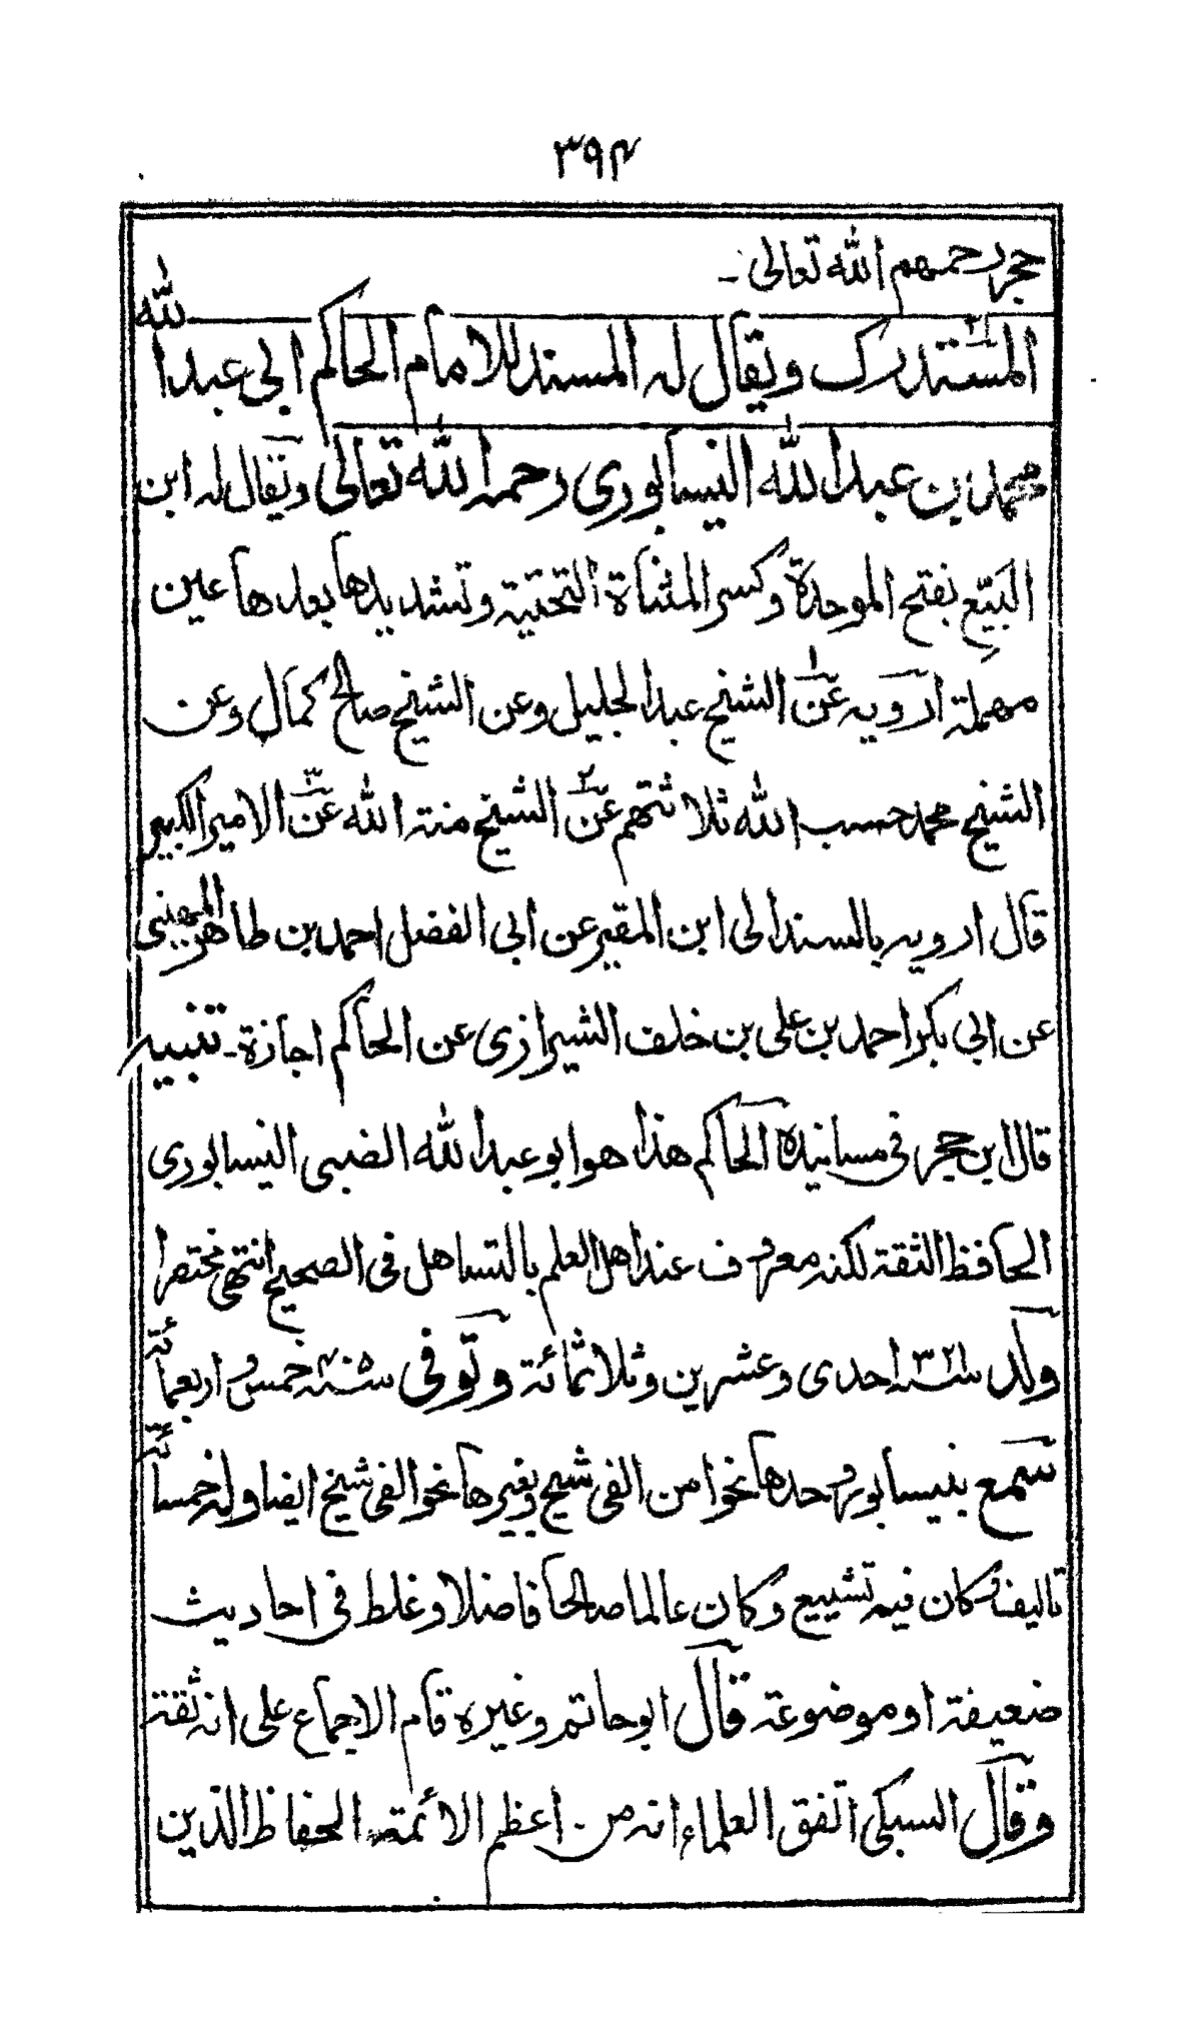 ٣٩٤
حجر رحمهم الله تعالى ـ
المستدرك ويقال له المسند للامام الحاكم ابى عبد الله
محمد بن عبد الله النيسابورى رحمه الله تعالى ويقال له ابن
البيّع بفتح الموحدة وكسر المثناة التحتية وتشديدها بعدها عين
مهملة ارويه عن الشيخ عبد الجليل وعن الشيخ صالح كمال وعن
الشيخ محمد حسب الله ثلاثتهم عن الشيخ منة الله عن الامير الكبير
قال ارويه بالسند الى ابن المقير عن ابى الفضل احمد بن طاهر الميهنى
عن ابى بكر احمد بن على بن خلف الشيرازى عن الحاكم اجازة ـ تنبيه
قال ابن حجر فى مسانيده الحاكم هذا هو ابو عبد الله الضبى النيسابورى
الحافظ الثقة لكنه معروف عند اهل العلم بالتساهل فى الصحيح انتهى مختصرا
ولد سنة ٣٢١ احدى وعشرين وثلاثمائة وتوفى سنة ٤٠٥ خمس واربعمائة
سمع بنيسابور وحدها نحوا من الفى شيخ وبغيرها نحو الفى شيخ ايضا وله خمسمائة
تاليف وكان فيه تشييع وكان عالما صالحا فاضلا وغلط فى احاديث
ضعيفة او موضوعة قال ابو حاتم وغيره قام الاجماع على انه ثقة
وقال السبكى اتفق العلماء انه من اعظم الائمة الحفاظ الذين